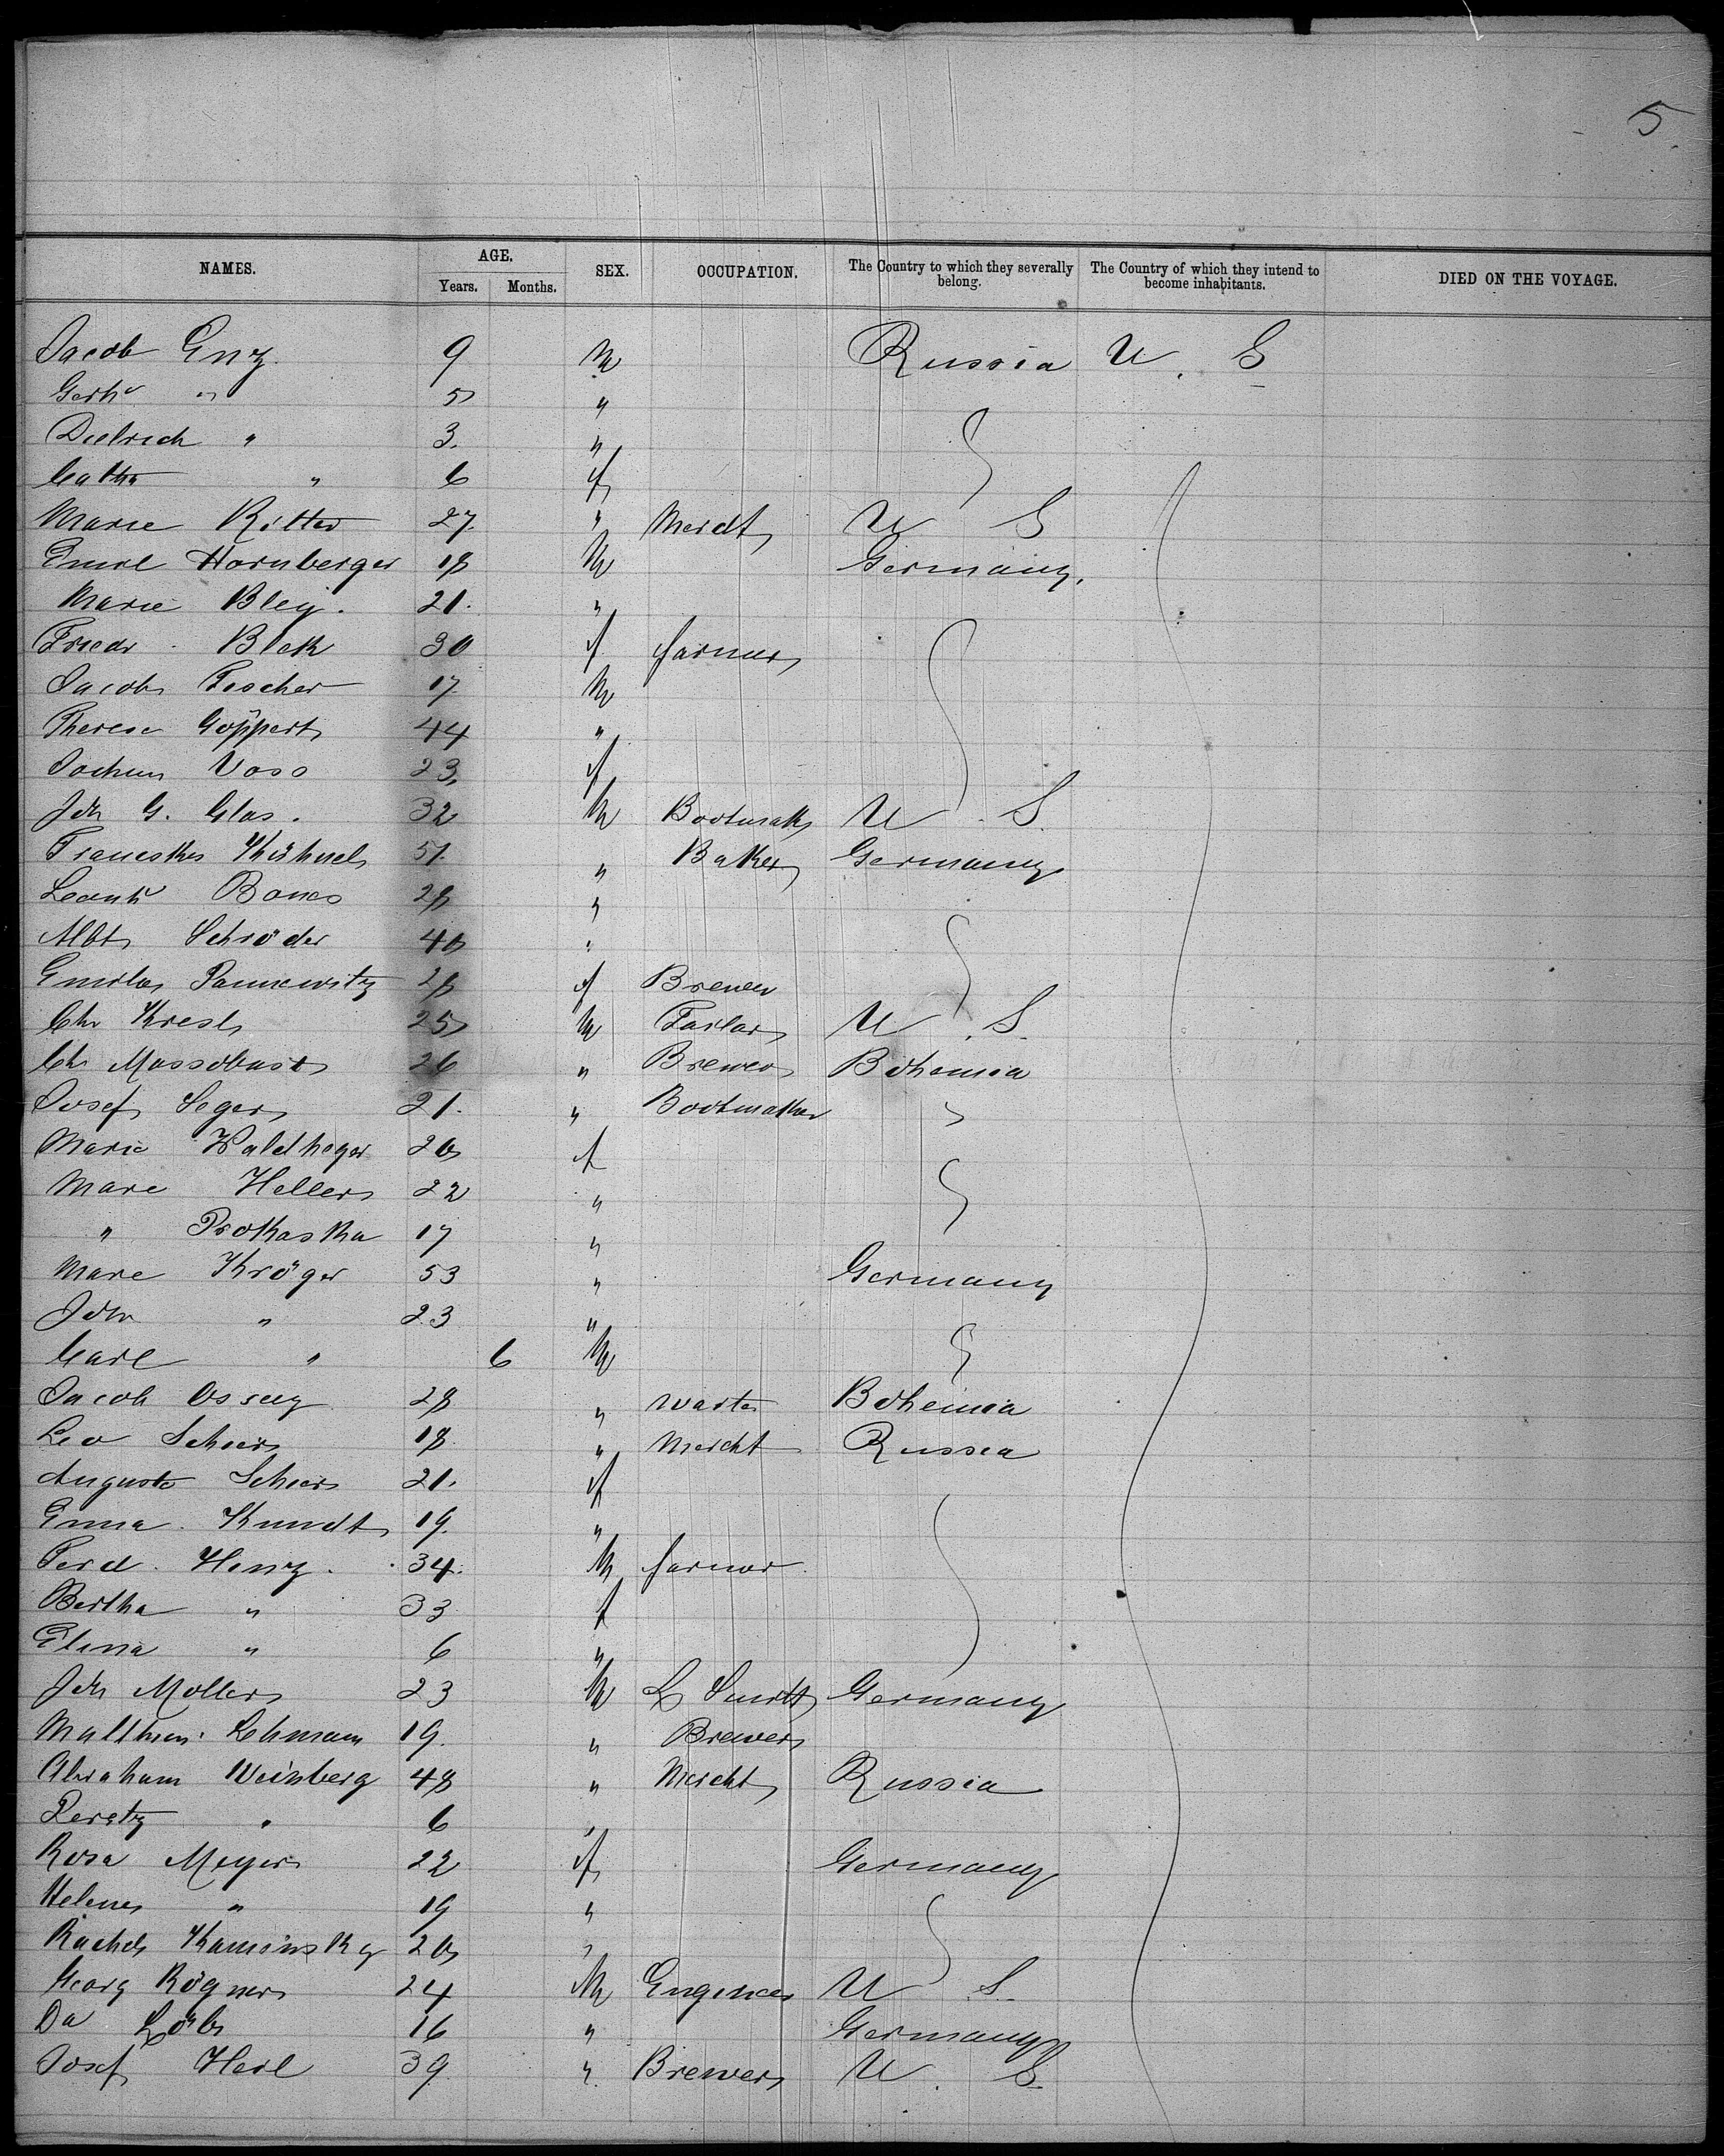 5
NAMES. AGE. Years. Months. SEX. OCCUPATION. The Country to which they severally belong. The Country of which they intend to become inhabitants. DIED ON THE VOYAGE.
Jacob 9 M Russia U. S
Gerh " 5 "
Dietrich " 3. "
Cath " 6 f
Marie Ritter 27 " U S
Emil Hornberger 18 M Germany.
Marie Bley. 21. "
Friedr. Blek 30 f farmer
Jacob Fischer 17 M
Therese Göppert 44 "
Jochum Voss 23. f
Joh G. Glas. 32 M Bootmak U. S.
Kühnel 51. " Baker Germany
28 "
Albt Schröder 40 "
28 f Brewer
Chr Kresl 25 M Tailor U. S.
Ch 26 " Brewer Bohemia
Josef Seger 21. " Bootmaker "
Marie Waldheger 20 f
Marie Heller 22 "
" Prokaska 17 "
Marie Kröger 53 " Germany
Joh " 23 "
Carl " 6 M
Jacob 28 " Bohemia
Leo Scheer 18 " Mercht Russia
Auguste Scheer 21. f
Emma Kundt 19. "
Ferd. Henz. 34. M farmer
Bertha " 33 f
" 6 "
Joh Moller 23 M L Smith Germany
Lehmann 19. " Brewer
Abraham Weinberg 48 " Mercht Russia
Peretz " 6 "
Rosa Meyer 22 f Germany
Helene " 19 "
Rachel Kaminsky 20 "
Georg Rögner 24 M Engineer U. S.
Da Löb 16 " Germany
Josef Herl 39 " Brewer U. S.